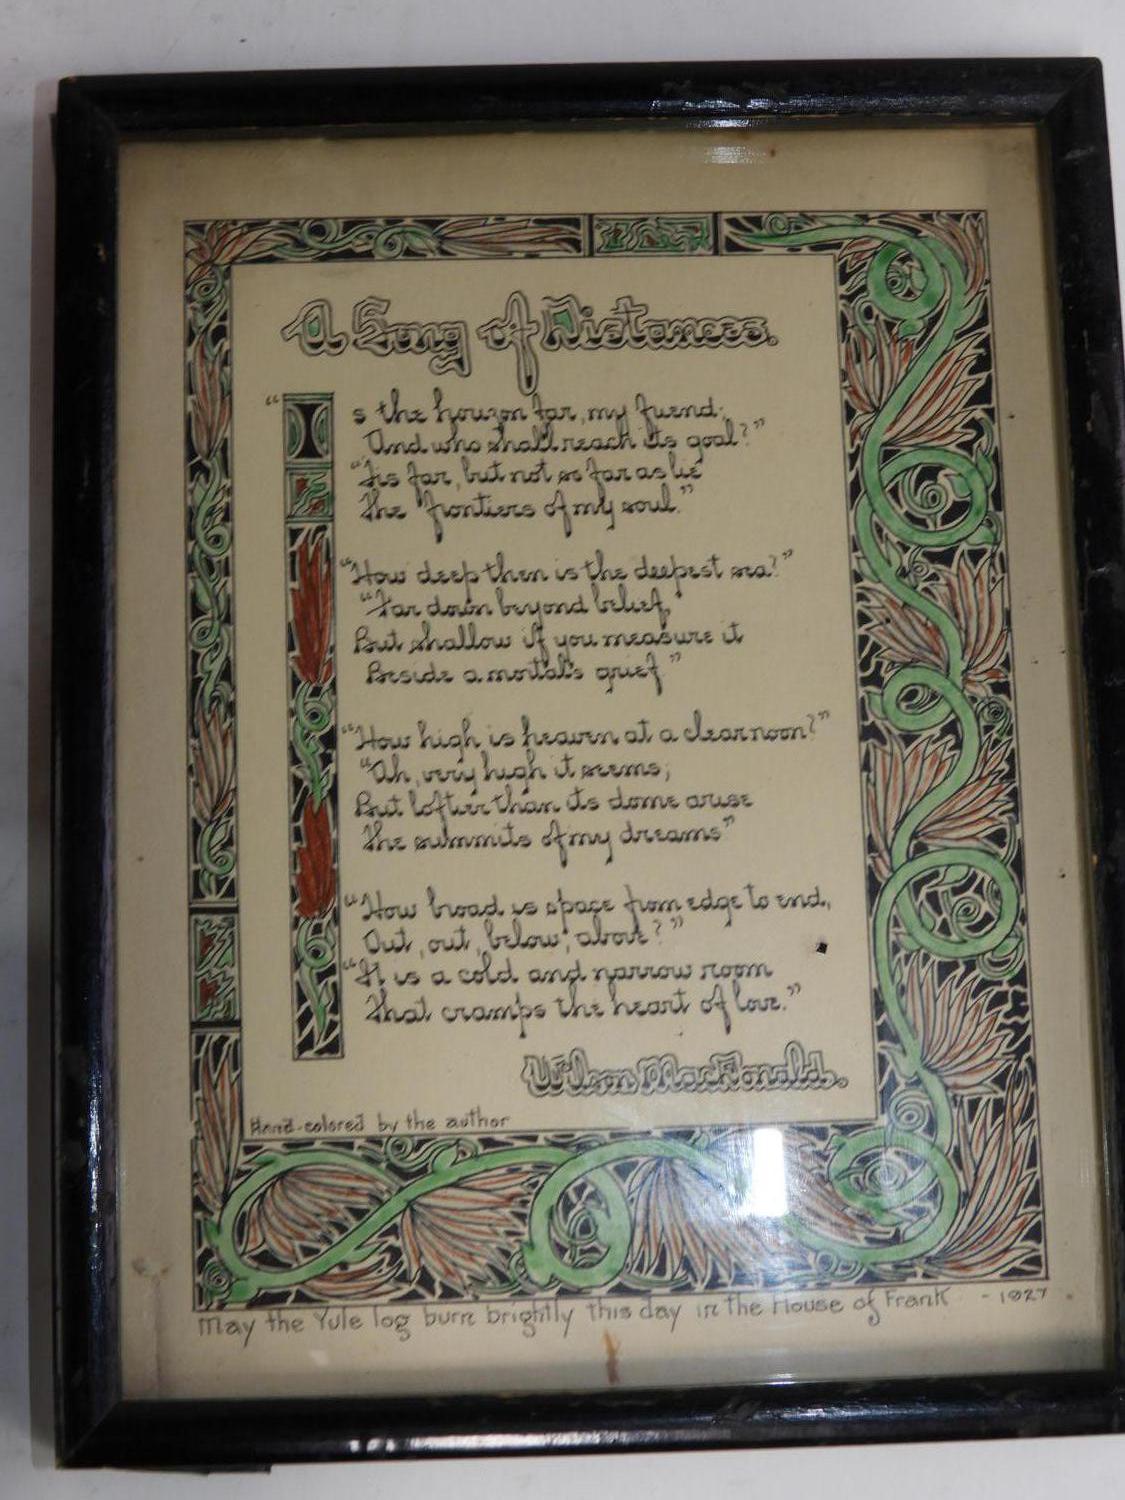 A Song of Distances.
"Is the horizon far, my friend;
And who shall reach its goal?"
"Tis far, but not so far as lie
The frontiers of my soul."
"How deep then is the deepest sea?"
"Far down beyond belief,
But shallow if you measure it
Beside a mortal's grief"
"How high is heaven at a clear noon?"
"Ah, very high it seems;
But loftier than its dome arise
The summits of my dreams"
"How broad is space from edge to end,
Out, out, below, above?"
"It is a cold and narrow room
That cramps the heart of love."
Wilson MacDonald.
Hand-colored by the author
May the Yule log burn brightly this day in the House of Frank - 1927